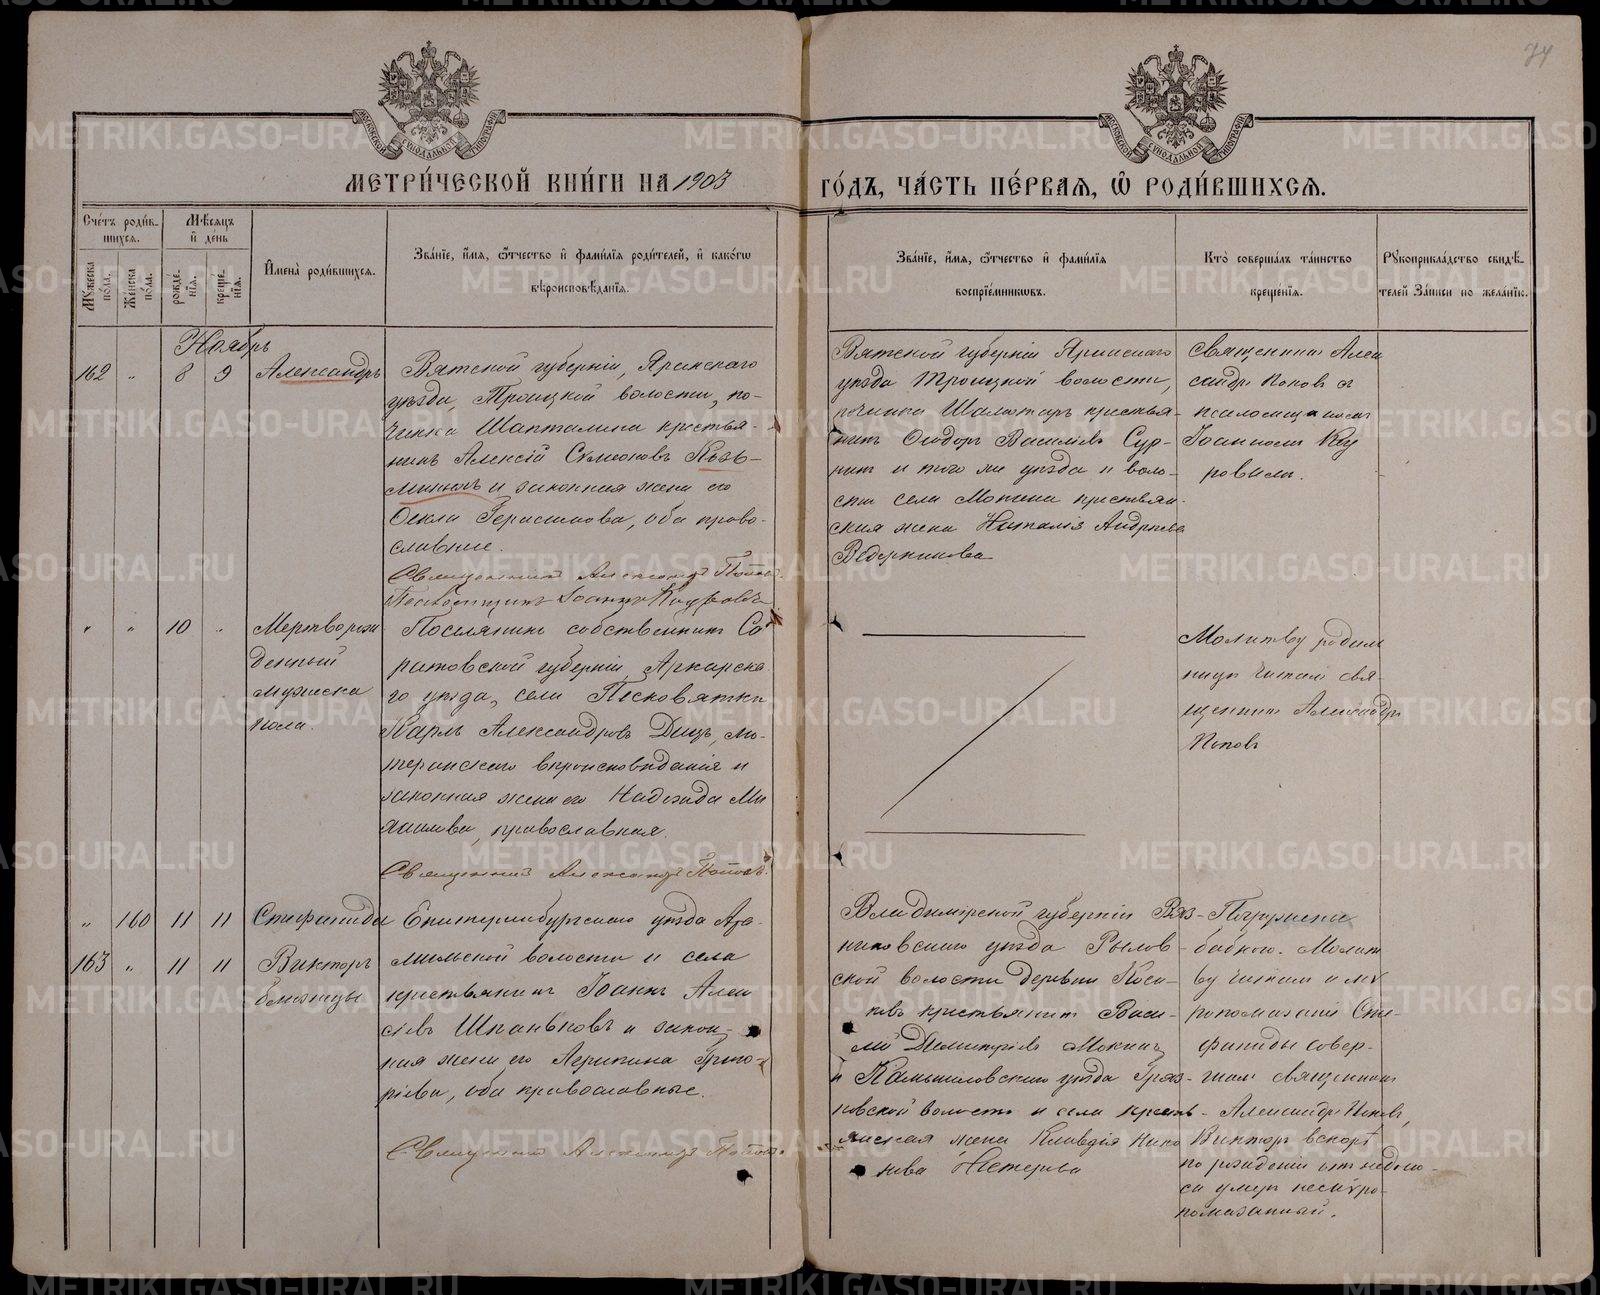 74
МОСКОВСКОЙ СѴНОДАЛЬНОЙ ТИПОГРАФІИ
МОСКОВСКОЙ СѴНОДАЛЬНОЙ ТИПОГРАФІИ
МЕТРИ́ЧЕСКОЙ КНИ́ГИ НА 1903
ГО́ДЪ, ЧА́СТЬ ПЕ́РВАЯ, Ѽ РОДИ́ВШИХСЯ.
Сче́тъ роди́в-
шихся.
Мѣ́сяцъ
и҆ де́нь
Му́жеска
по́ла.
Же́нска
по́ла.
рожде́-
нїя.
креще́-
нїя.
И҆мена̀ роди́вшихся.
Зва́нїе, и҆́мя, ѻ҆́тчество и҆ фами́лїя роди́телей, и҆ како́гѡ
вѣроисповѣ́данїя.
Зва́нїе, и҆́мя, ѻ҆́тчество и҆ фами́лїя
воспрїе́мниковъ.
Кто̀ соверша́лъ та́инство
креще́нїя.
Рукоприкла́дство свидѣ́-
телей за́писи по жела́нїю.
Ноябрь
162 " 8 9 Александръ
Вятской губерніи, Яранскаго
уѣзда, Троицкой волости, по-
чинка Шапталина крестья-
нинъ Алексій Симеоновъ Кузь-
миныхъ и законная жена его
Ѳекла Герасимова, оба право-
славные.
Священникъ Александръ Поповъ
Псаломщикъ Іоаннъ Коуровъ
Вятской губерніи Яранскаго
уѣзда Троицкой волости,
починка крестья-
нинъ Ѳеодоръ Василіевъ Сур-
нинъ и того же уѣзда и воло-
сти села крестьян-
ская жена Наталія Андреева
Ведерникова
Священникъ Алек
сандръ Поповъ съ
псаломщикомъ
Іоанномъ Коу
ровымъ.
" " 10 " Мертворож
денный
мужеска
пола.
Поселянинъ собственникъ Са
ратовской губерніи, Аткарска
го уѣзда, села Песковатки
Карлъ Александровъ Дицъ, лю-
теранскаго вѣроисповѣданія и
законная жена его Надежда Ми
хаилова, православная.
Священникъ Александръ Поповъ.
Молитву родиль
ницѣ читалъ свя-
щенникъ Александръ
Поповъ
" 160 11 11 Стефанида
163 " 11 11 Викторъ
близнецы
Екатеринбургскаго уѣзда Ара-
мильской волости и села
крестьянинъ Іоаннъ Алек
сѣевъ и закон-
ная жена его Агриппина Григо-
ріева, оба православные.
Священникъ Александръ Поповъ.
Владимірской губерніи Вяз-
никовскаго уѣзда Рыловс-
кой волости деревни
крестьянинъ Васи-
лій Димитріевъ Мокинъ
и Камышловскаго уѣзда Гряз-
новской волости и села кресть-
янская жена Клавдія Нико
нова Нестерова
Погружены
бабкою. Молит
ву читалъ и мѵ
ропомазаніе Сте-
фаниды совер-
шалъ священникъ
Александръ Поповъ,
Викторъ вскорѣ
по рожденіи отъ недоно-
са умеръ немѵро-
помазанный.